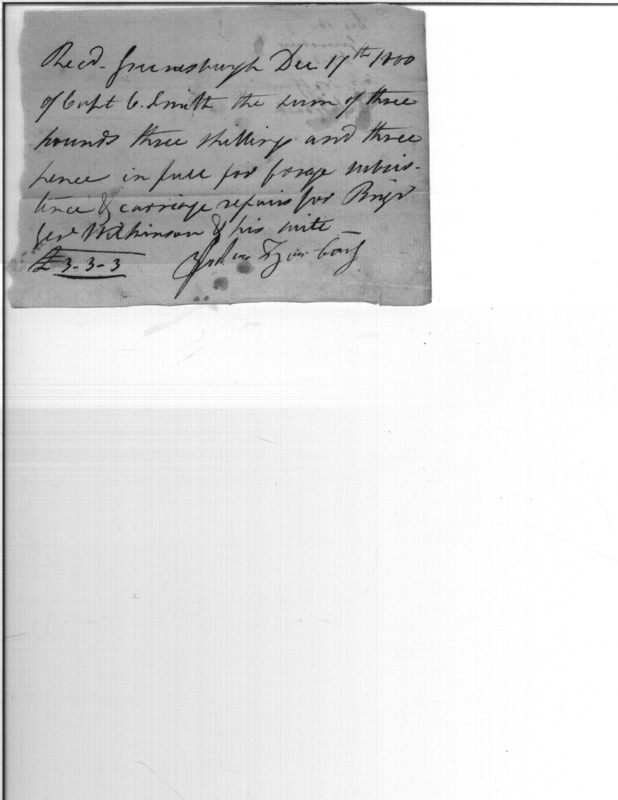 Recd. Greensburgh Dec. 17th 1800
of Capt C. Smith the sum of three
pounds three shillings and three
pence in full for forage subsis-
tence & carriage repairs for Brigr
Genl Wilkinson & his suite
£ 3-3-3